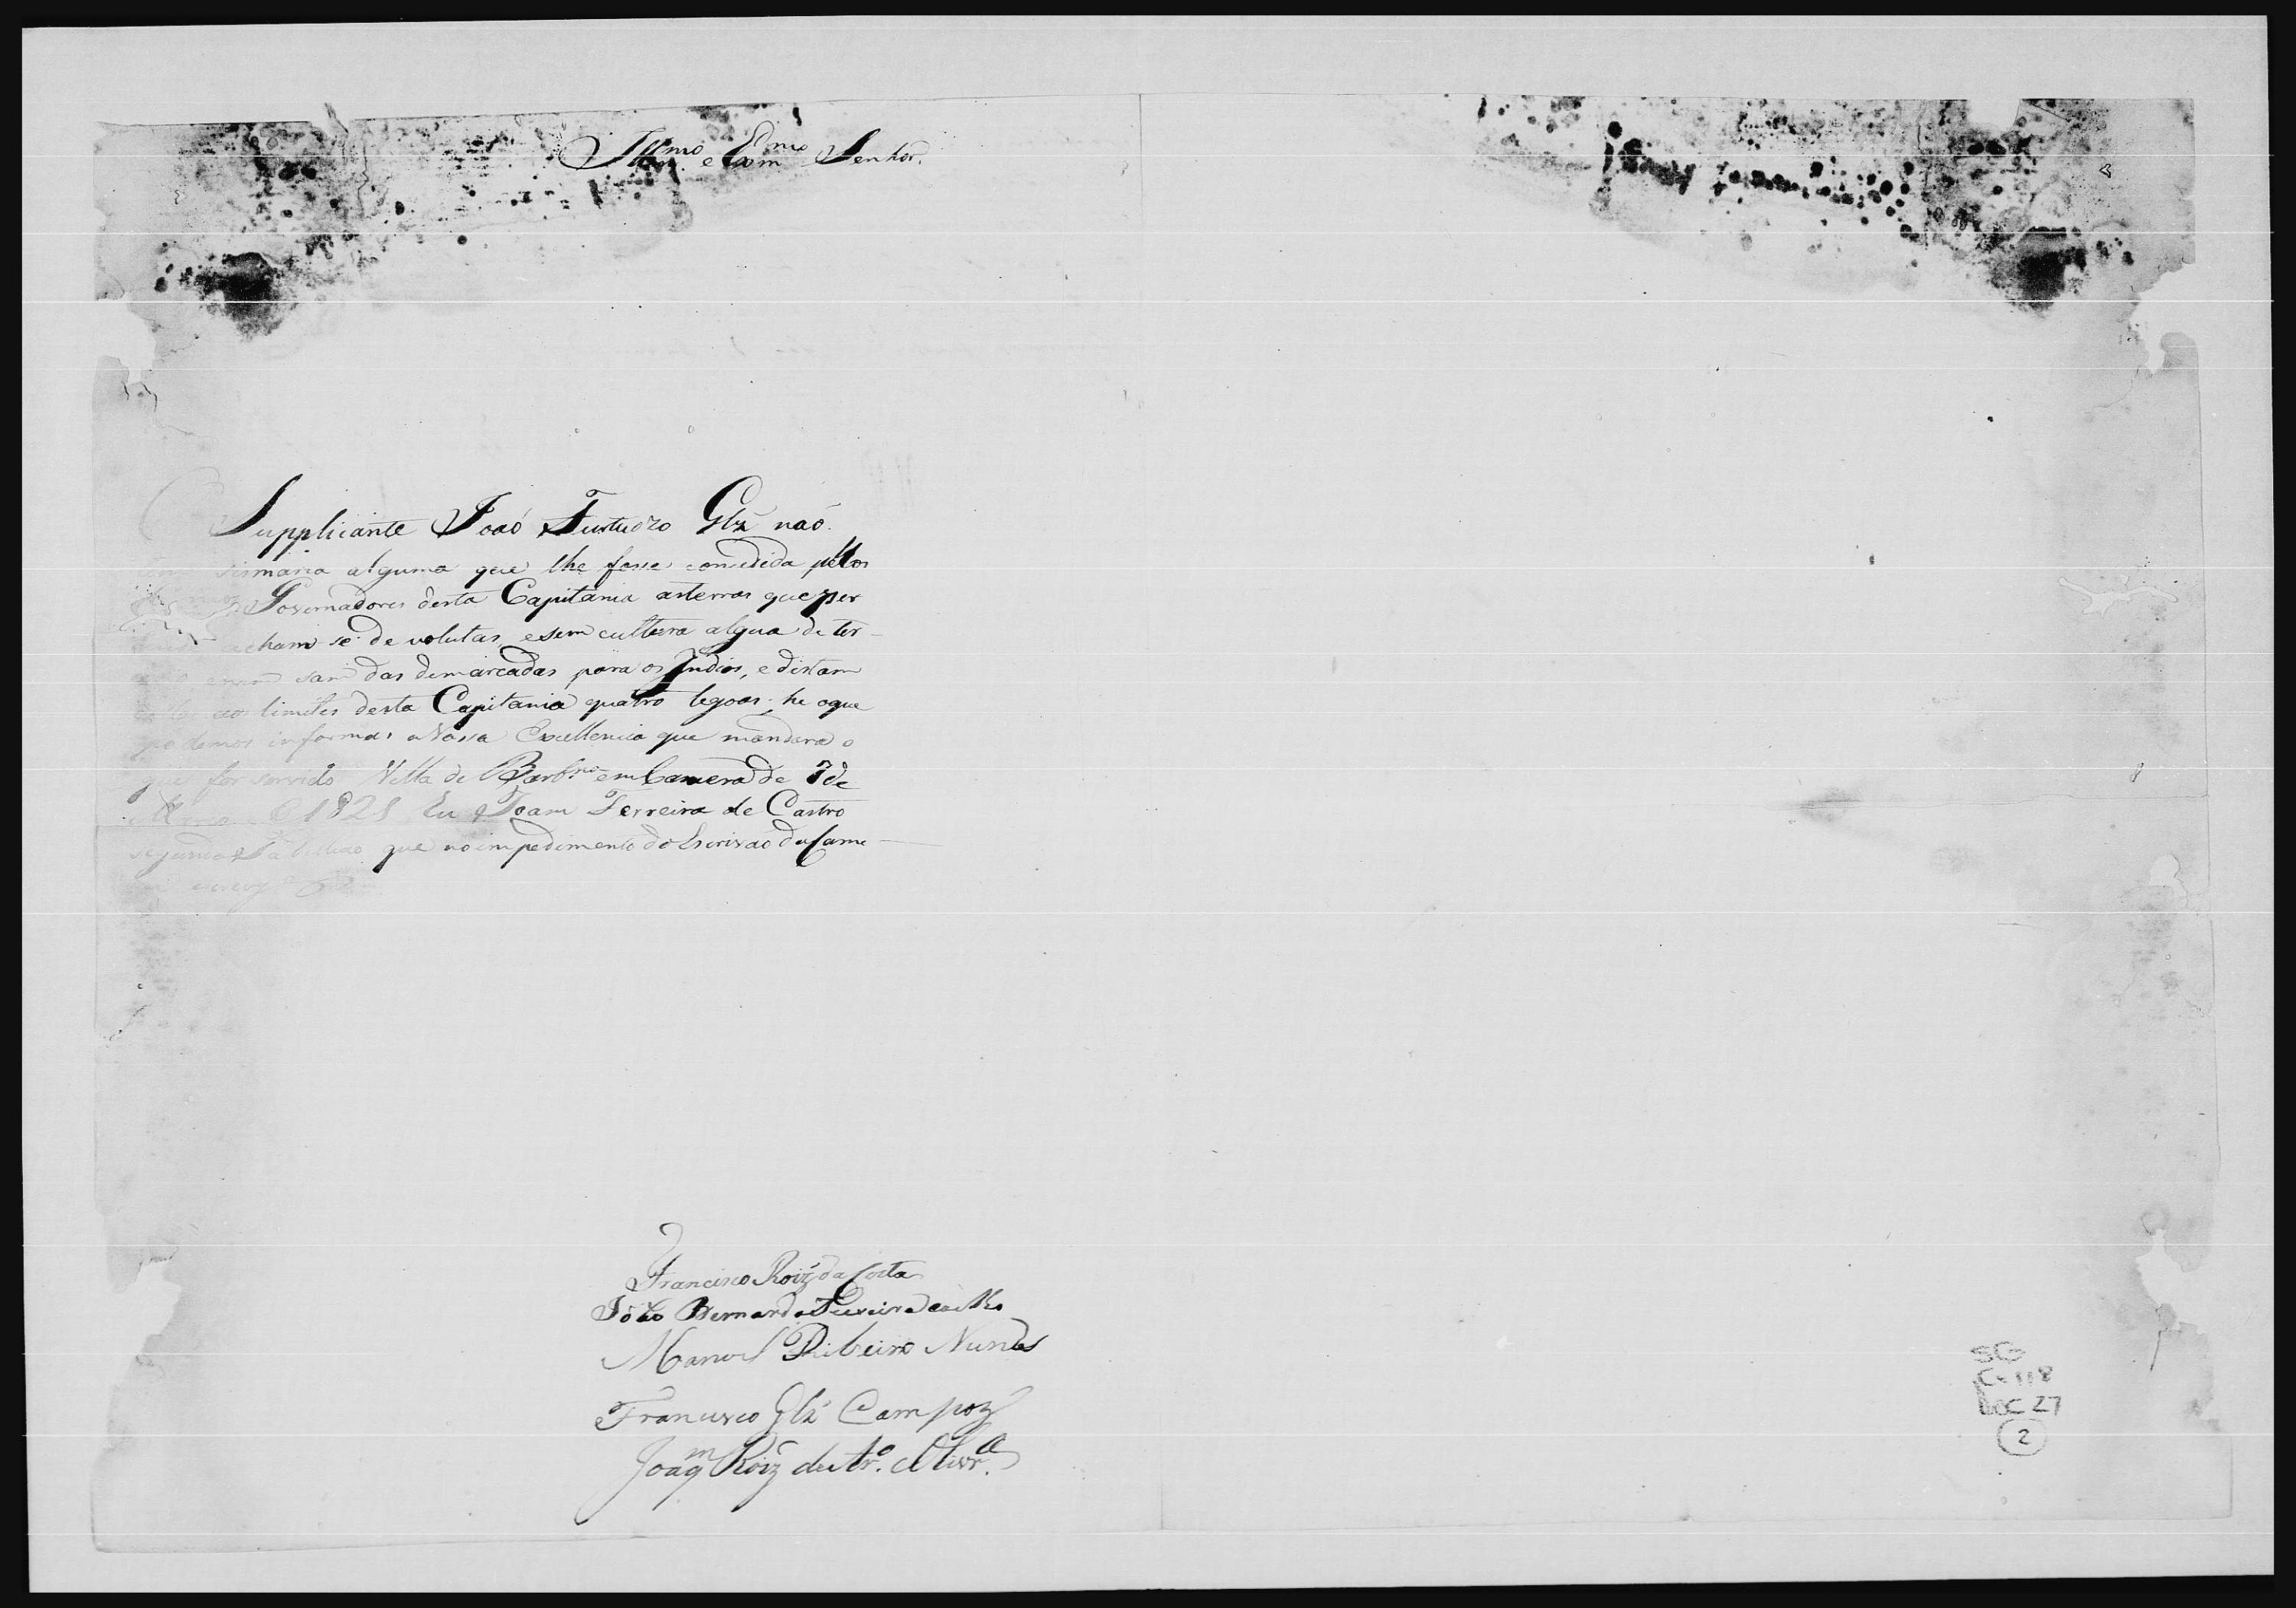 Illmo e Exmo Senhor.
Supplicante Joaõ Glz naõ
sismaria alguma que lhe fosse concedida pellos
Governadores desta Capitania asterras que per
acham se devolutas, esem cultura algua de ter-
sam das demarcadas para os Indios, e distam
aos limites desta Capitania quatro legoas; he oque
podemos informar aVossa Excellencia que mandara o
que for servido Villa de Barb.na em Camera de 7 de
1821 Eu Joam Ferreira de Castro
segundo Tabeliao que noimpedimento do Escrivaõ da Came-
Francisco Roiz da Costa
Joaõ Bernardo Teixeira coelho
Manoel Ribeiro Nunes
Francisco Glz Campoz
Joaqm Roiz de Olivra
SG
Cx 118
DOC 27
2